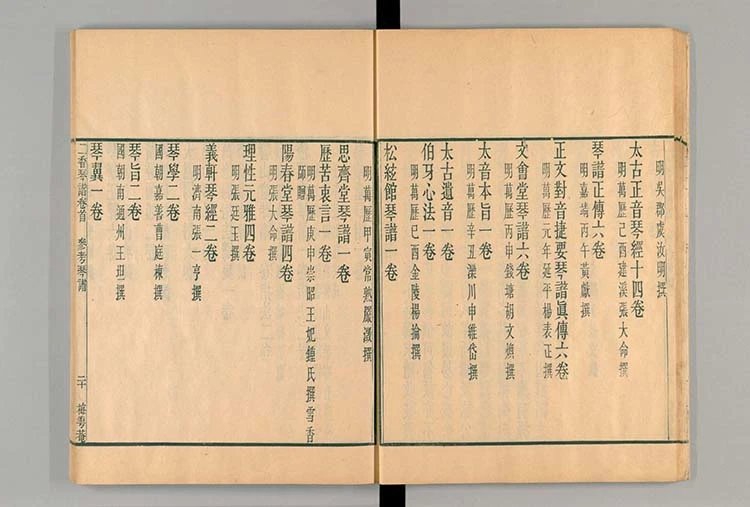 明吳郡嚴汝明撰
太古正音琴經十四卷
明萬歷己酉建溪張大命撰
琴譜正傳六卷
明嘉靖丙午黃獻撰
正文對音捷要琴譜眞傳六卷
明萬歷元年延平楊表正撰
文會堂琴譜六卷
明萬歷丙申錢塘胡文煥撰
太音本旨一卷
明萬歷辛丑灤川申維岱撰
太古遺音一卷
伯牙心法一卷
明萬歷己酉金陵楊掄撰
松絃館琴譜一卷
明萬歷甲寅常熟嚴澂撰
思齊堂琴譜一卷
歷苦衷言一卷
明萬歷庚申崇昭王妃鍾氏撰雪香
師贈
陽春堂琴譜四卷
明張大命撰
理性元雅四卷
明張廷玉撰
義軒琴經二卷
明濟南張一亨撰
琴學二卷
國朝嘉善曹庭棟撰
琴旨二卷
國朝南通州王坦撰
琴翼一卷
二香琴譜卷首
參考琴譜
二十
梅雪菴